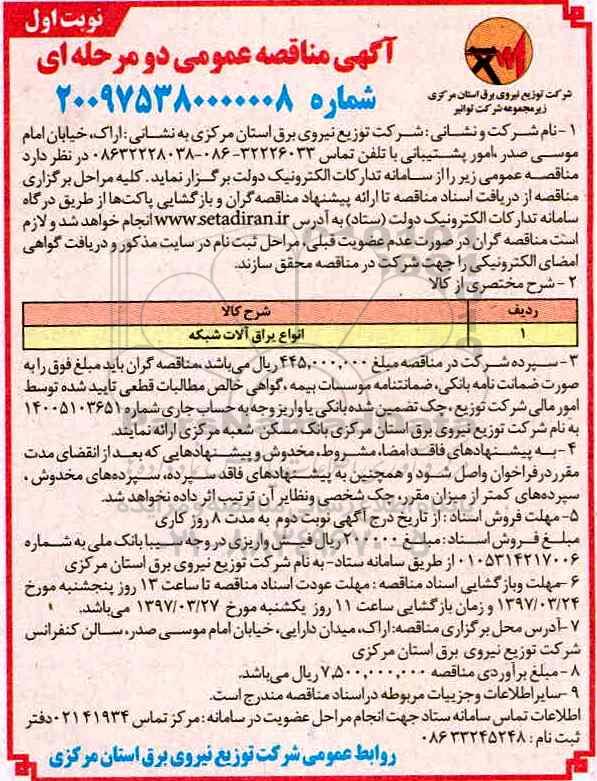 نوبت اول
آگهی مناقصه عمومی دو مرحله ای
شماره ۲۰۰۹۷۵۳۸۰۰۰۰۰۰۸
شرکت توزیع نیروی برق استان مرکزی
زیرمجموعه شرکت توانیر
۱- نام شرکت و نشانی: شرکت توزیع نیروی برق استان مرکزی به نشانی: اراک، خیابان امام
موسی صدر ،امور پشتیبانی با تلفن تماس ۳۲۲۲۶۰۳۳-۰۸۶ -۰۸۶۳۲۲۲۸۰۳۸ در نظر دارد
مناقصه عمومی زیر را از سامانه تدارکات الکترونیک دولت برگزار نماید. کلیه مراحل برگزاری
مناقصه از دریافت اسناد مناقصه تا ارائه پیشنهاد مناقصه گران و بازگشایی پاکت‌ها از طریق درگاه
سامانه تدارکات الکترونیک دولت (ستاد) به آدرس www.setadiran.ir انجام خواهد شد و لازم
است مناقصه گران در صورت عدم عضویت قبلی، مراحل ثبت نام در سایت مذکور و دریافت گواهی
امضای الکترونیکی را جهت شرکت در مناقصه محقق سازند.
۲- شرح مختصری از کالا
ردیف شرح کالا
۱ انواع یراق آلات شبکه
۳- سپرده شرکت در مناقصه مبلغ ۴۴۵,۰۰۰,۰۰۰ ریال می‌باشد ،مناقصه گران باید مبلغ فوق را به
صورت ضمانت نامه بانکی، ضمانتنامه موسسات بیمه ،گواهی خالص مطالبات قطعی تایید شده توسط
امور مالی شرکت توزیع ، چک تضمین شده بانکی یا واریز وجه به حساب جاری شماره ۱۴۰۰۵۱۰۳۶۵۱
به نام شرکت توزیع نیروی برق استان مرکزی بانک مسکن شعبه مرکزی ارائه نمایند.
۴- به پیشنهادهای فاقد امضا، مشروط، مخدوش و پیشنهادهایی که بعد از انقضای مدت
مقرر در فراخوان واصل شود و همچنین به پیشنهادهای فاقد سپرده، سپرده‌های مخدوش ،
سپرده‌های کمتر از میزان مقرر، چک شخصی و نظایر آن ترتیب اثر داده نخواهد شد.
۵- مهلت فروش اسناد : از تاریخ درج آگهی نوبت دوم به مدت ۸ روز کاری
مبلغ فروش اسناد: مبلغ ۲۱۷۰۰۰ ریال فیش واریزی در وجه سیبا بانک ملی به شماره
۰۱۰۵۳۱۴۲۱۷۰۰۶ از طریق سامانه ستاد- به نام شرکت توزیع نیروی برق استان مرکزی
۶-مهلت وبازگشایی اسناد مناقصه : مهلت عودت اسناد مناقصه تا ساعت ۱۳ روز پنجشنبه مورخ
۱۳۹۷/۰۳/۲۴ و زمان بازگشایی ساعت ۱۱ روز یکشنبه مورخ ۱۳۹۷/۰۳/۲۷ می‌باشد.
۷-آدرس محل برگزاری مناقصه: اراک، میدان دارایی، خیابان امام موسی صدر، سالن کنفرانس
شرکت توزیع نیروی برق استان مرکزی
۸- مبلغ برآوردی مناقصه ۷,۵۰۰,۰۰۰,۰۰۰ ریال می‌باشد.
۹- سایر اطلاعات و جزییات مربوطه در اسناد مناقصه مندرج است.
اطلاعات تماس سامانه ستاد جهت انجام مراحل عضویت در سامانه : مرکز تماس ۰۲۱۴۱۹۳۴ دفتر
ثبت نام : ۰۸۶۳۳۲۴۵۲۴۸
روابط عمومی شرکت توزیع نیروی برق استان مرکزی